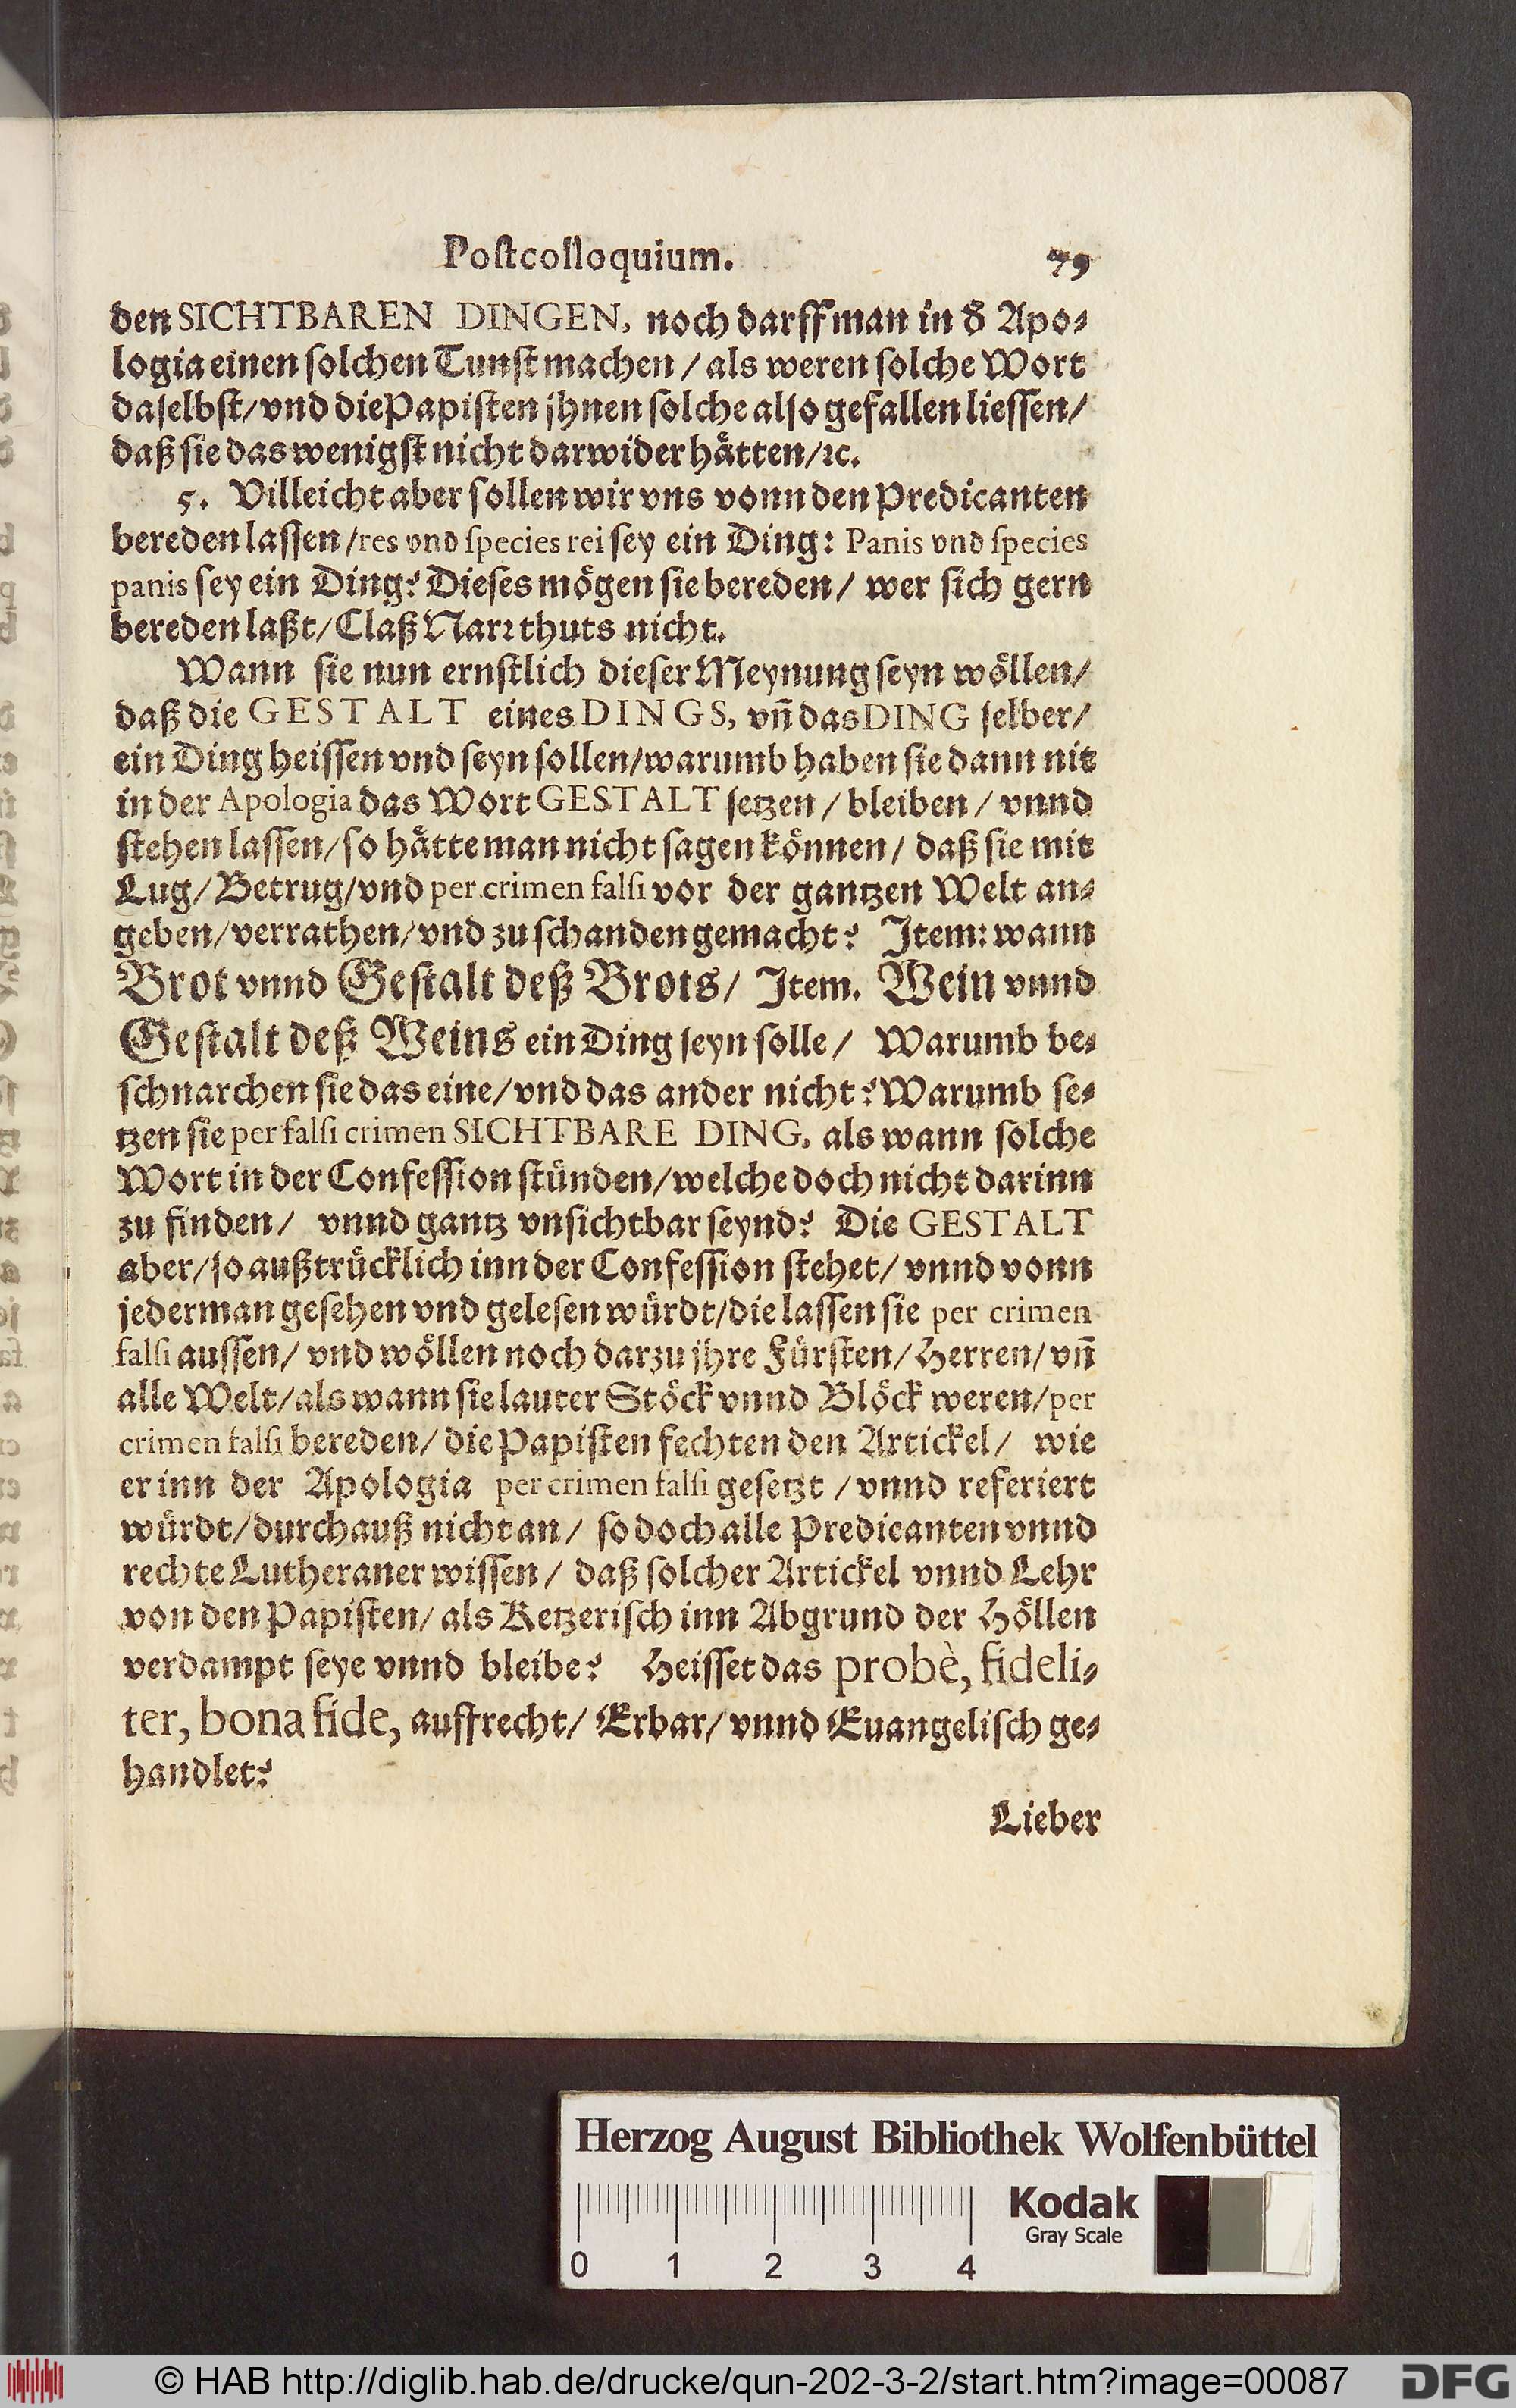 Postcolloquium. 79
den SICHTBAREN DINGEN, noch darff man in d' Apo-
logia einen solchen Tunst machen / als weren solche Wort
daselbst/vnd die Papisten jhnen solche also gefallen liessen/
daß sie das wenigst nicht darwider hätten/ꝛc.
5. Villeicht aber sollen wir vns vonn den Predicanten
bereden lassen /res vnd species rei sey ein Ding: Panis vnd species
panis sey ein Ding? Dieses mögen sie bereden/ wer sich gern
bereden laßt/Claß Narꝛ thuts nicht.
Wann sie nun ernstlich dieser Meynung seyn wöllen/
daß die GESTALT eines DINGS, vñ das DING selber/
ein Ding heissen vnd seyn sollen/warumb haben sie dann nit
in der Apologia das Wort GESTALT setzen / bleiben / vnnd
stehen lassen/so hätte man nicht sagen können/ daß sie mit
Lug/Betrug/vnd per crimen falsi vor der gantzen Welt an-
geben/verrathen/vnd zu schanden gemacht? Item: wann
Brot vnnd Gestalt deß Brots/ Item. Wein vnnd
Gestalt deß Weins ein Ding seyn solle/ Warumb be-
schnarchen sie das eine/vnd das ander nicht? Warumb se-
tzen sie per falsi crimen SICHTBARE DING, als wann solche
Wort in der Confession stünden/welche doch nicht darinn
zu finden/ vnnd gantz vnsichtbar seynd? Die GESTALT
aber/so außtrücklich inn der Confession stehet/ vnnd vonn
jederman gesehen vnd gelesen würdt/die lassen sie per crimen
falsi aussen/ vnd wöllen noch darzu jhre Fürsten/Herren/vñ
alle Welt/als wann sie lauter Stöck vnnd Blöck weren/per
crimen falsi bereden/die Papisten fechten den Artickel/ wie
er inn der Apologia per crimen falsi gesetzt /vnnd referiert
würdt/durchauß nicht an/ so doch alle Predicanten vnnd
rechte Lutheraner wissen/ daß solcher Artickel vnnd Lehr
von den Papisten/als Ketzerisch inn Abgrund der Höllen
verdampt seye vnnd bleibe? Heisset das probè, fideli-
ter, bona fide, auffrecht/ Erbar/ vnnd Euangelisch ge-
handlet?
Lieber
Herzog August Bibliothek Wolfenbüttel
Kodak
Gray Scale
0 1 2 3 4
© HAB http://diglib.hab.de/drucke/qun-202-3-2/start.htm?image=00087
DFG